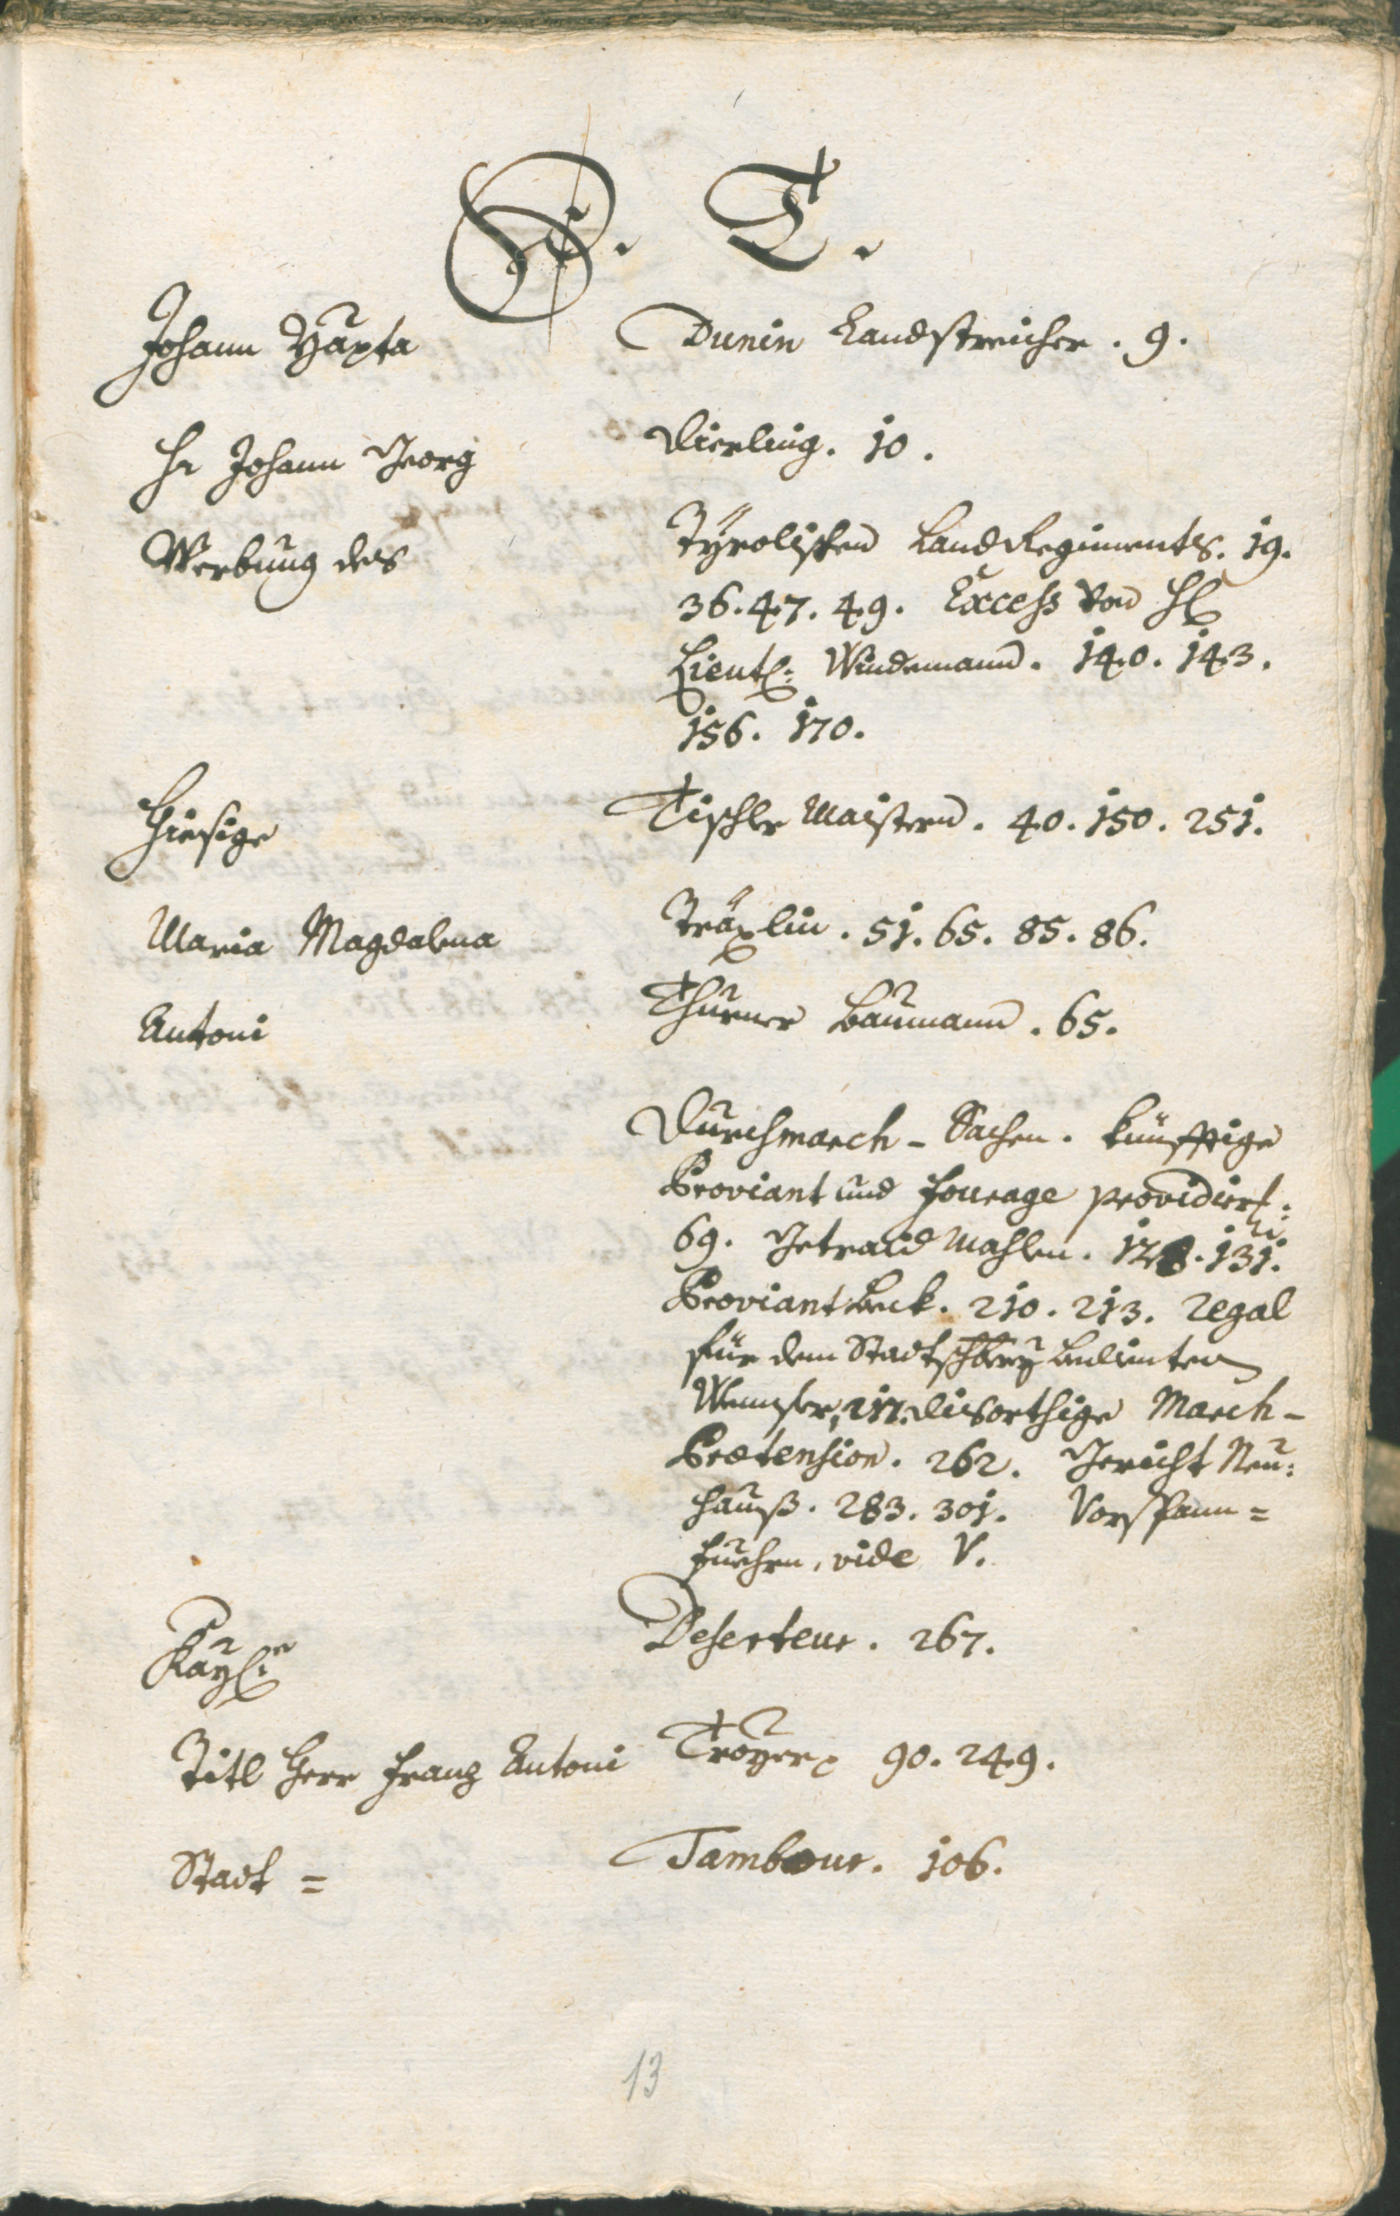 D. T.
Johann Bapta Dunin Landstreicher. 9.
Hr Johann Georg Dierling. 10.
Werbung des Tÿrolischen Land Regiments. 19.
36. 47. 49. Excess von H
Lieut: Windemann. 140. 143.
156. 170.
Hiesige Tischler Maistern. 40. 150. 251.
Maria Magdalena Träxlin. 51. 65. 85. 86.
Antoni Thurner Baumann. 65.
Durchmarch - Sachen. künfftige
Proviant und Fourage providiert:
69. Getraid Mahlen. 131.
Proviant Beck. 210. 213. Regal
für dem Stadtschbrz
217. disorthige March-
Prætension. 262. Gericht Neu:
hauß. 283. 301. Vorspann=
fuehren, vide V.
Kaÿl: Deserteur. 267.
Titl Herr Franz Antoni Troyer 90. 249.
Stadt = Tambour. 106.
13